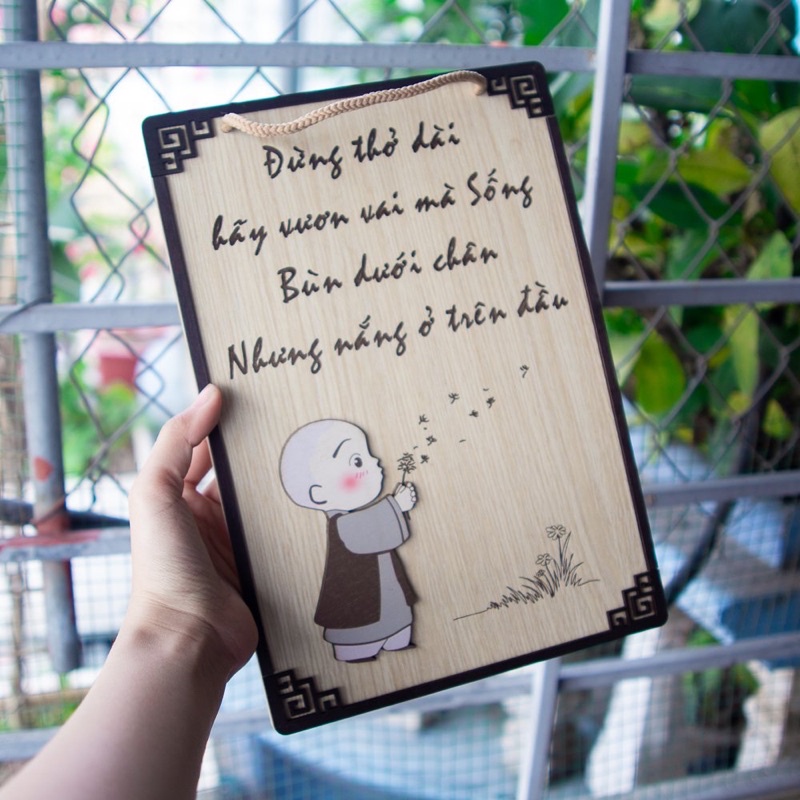 Đừng thở dài
hãy vươn vai mà Sống
Bùn dưới chân
Nhưng nắng ở trên đầu